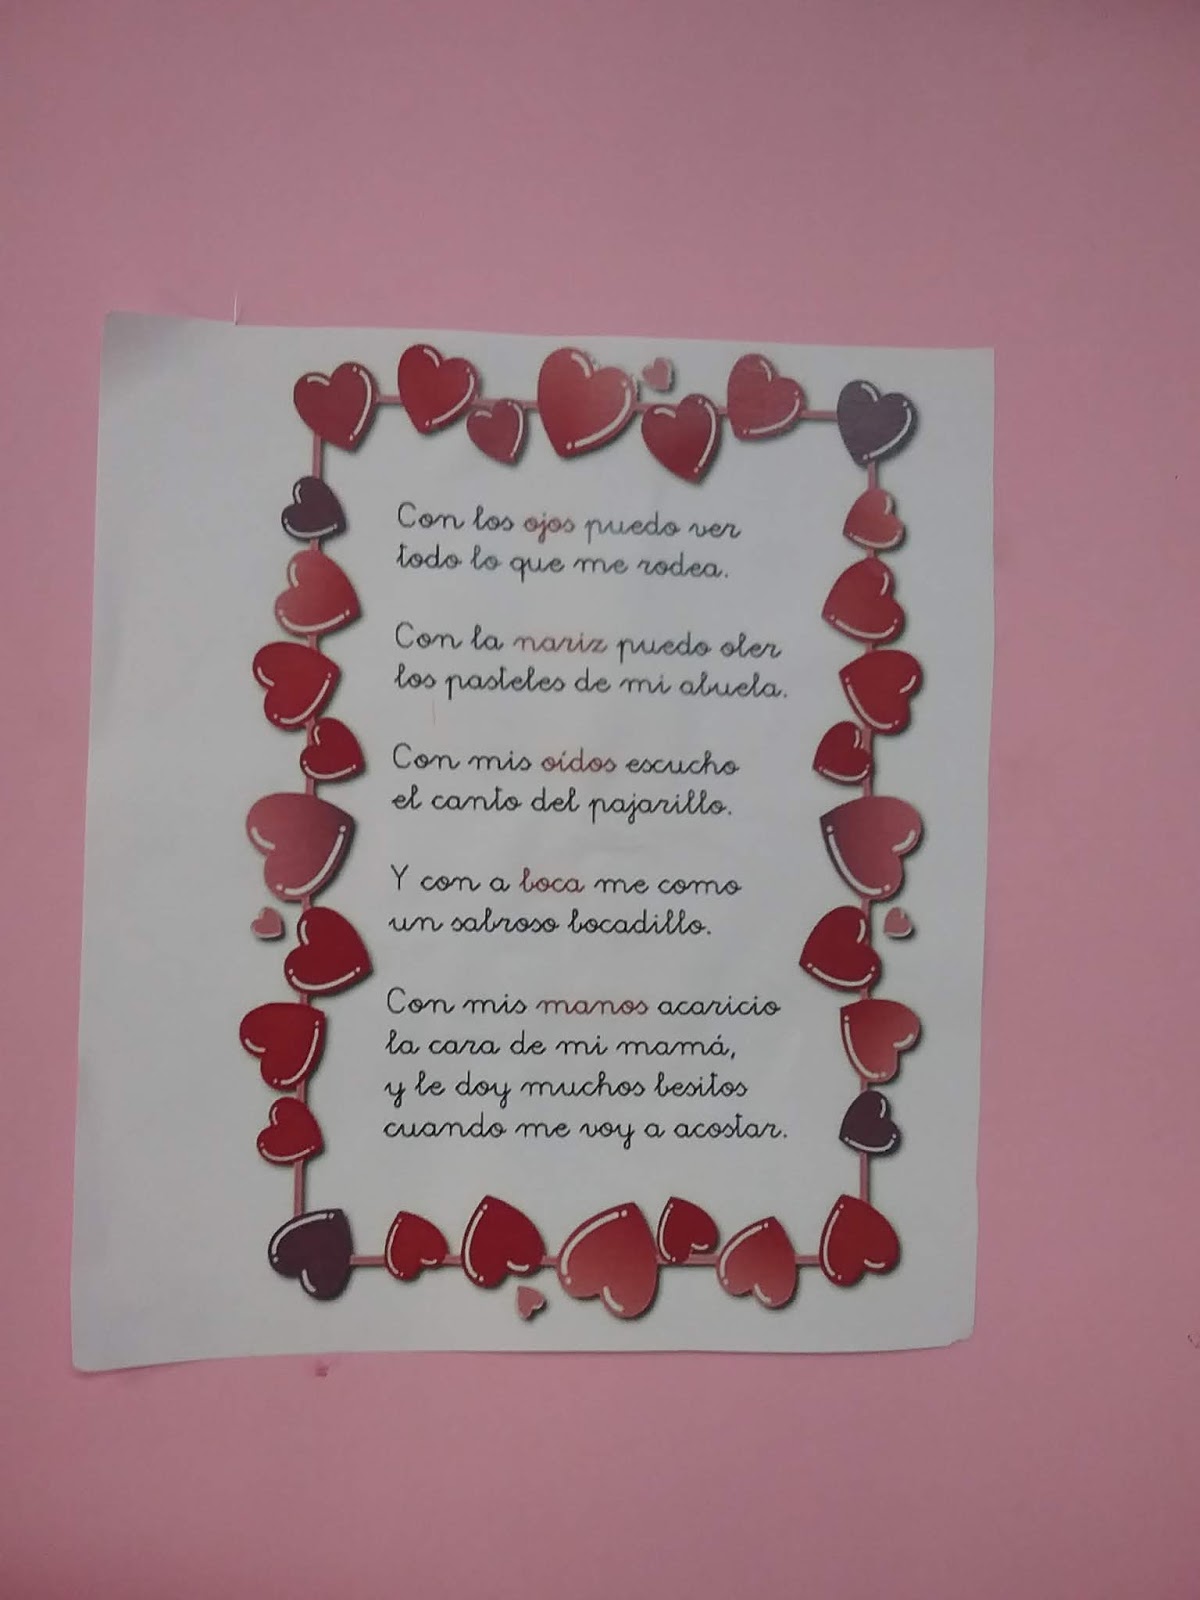 Con los ojos puedo ver
todo lo que me rodea.
Con la nariz puedo oler
los pasteles de mi abuela.
Con mis oídos escucho
el canto del pajarillo.
Y con a boca me como
un sabroso bocadillo.
Con mis manos acaricio
la cara de mi mamá,
y le doy muchos besitos
cuando me voy a acostar.